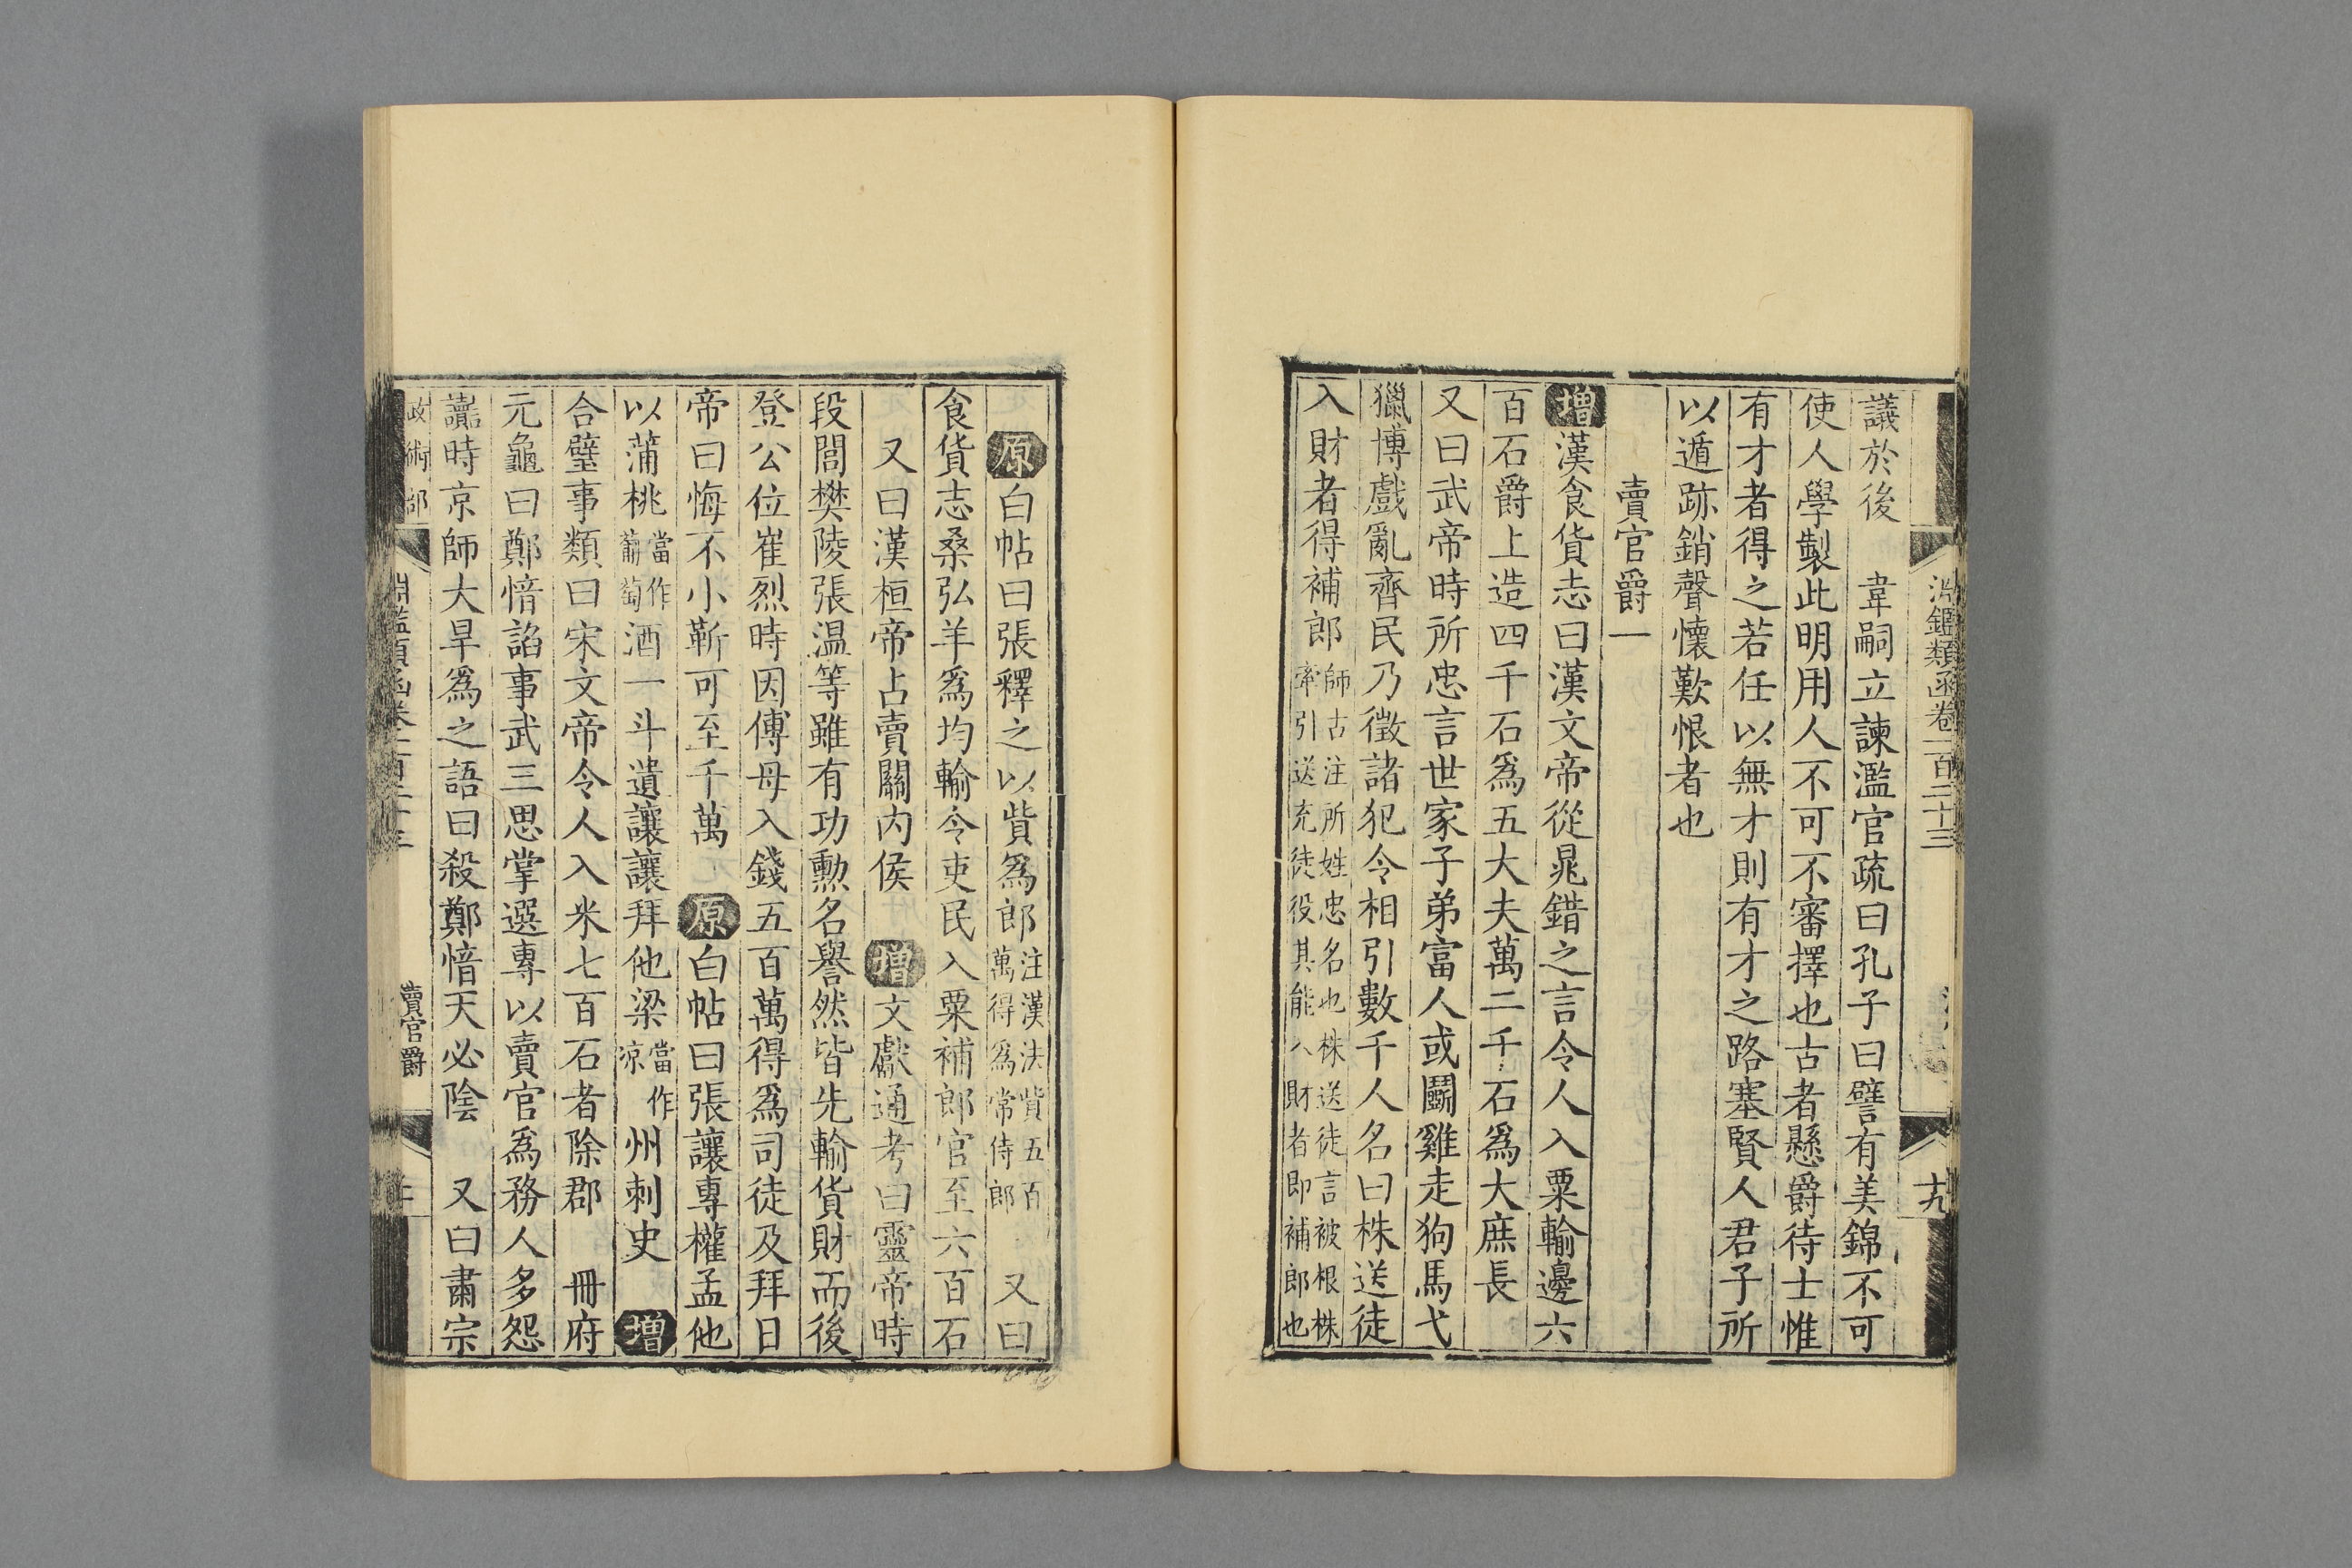 淵鑑類函卷一百二十三
十九
議於後　韋嗣立諫濫官疏曰孔子曰譬有美錦不可
使人學製此明用人不可不審擇也古者懸爵待士惟
有才者得之若任以無才則有才之路塞賢人君子所
以遁跡銷聲懷歎恨者也
賣官爵一
增漢食貨志曰漢文帝從晁錯之言令人入粟輸邊六
百石爵上造四千石爲五大夫萬二千石爲大庶長
又曰武帝時所忠言世家子弟富人或鬬雞走狗馬弋
獵博戲亂齊民乃徵諸犯令相引數千人名曰株送徒
入財者得補郎師古注所姓忠名也株送徒言被根株牽引送充徒役其能入財者即補郎也
原白帖曰張釋之以貲爲郎注漢法貲五百萬得爲常侍郎　又曰
食貨志桑弘羊爲均輸令吏民入粟補郎官至六百石
又曰漢桓帝占賣關内侯　增文獻通考曰靈帝時
段閻樊陵張温等雖有功勲名譽然皆先輸貨財而後
登公位崔烈時因傅母入錢五百萬得爲司徒及拜日
帝曰悔不小靳可至千萬　原白帖曰張讓專權孟他
以蒲桃當作葡萄酒一斗遺讓讓拜他梁當作凉州刺史　增
合璧事類曰宋文帝令人入米七百石者除郡　冊府
元龜曰鄭愔諂事武三思掌選專以賣官爲務人多怨
讟時京師大旱爲之語曰殺鄭愔天必陰　又曰肅宗
政術部
賣官爵